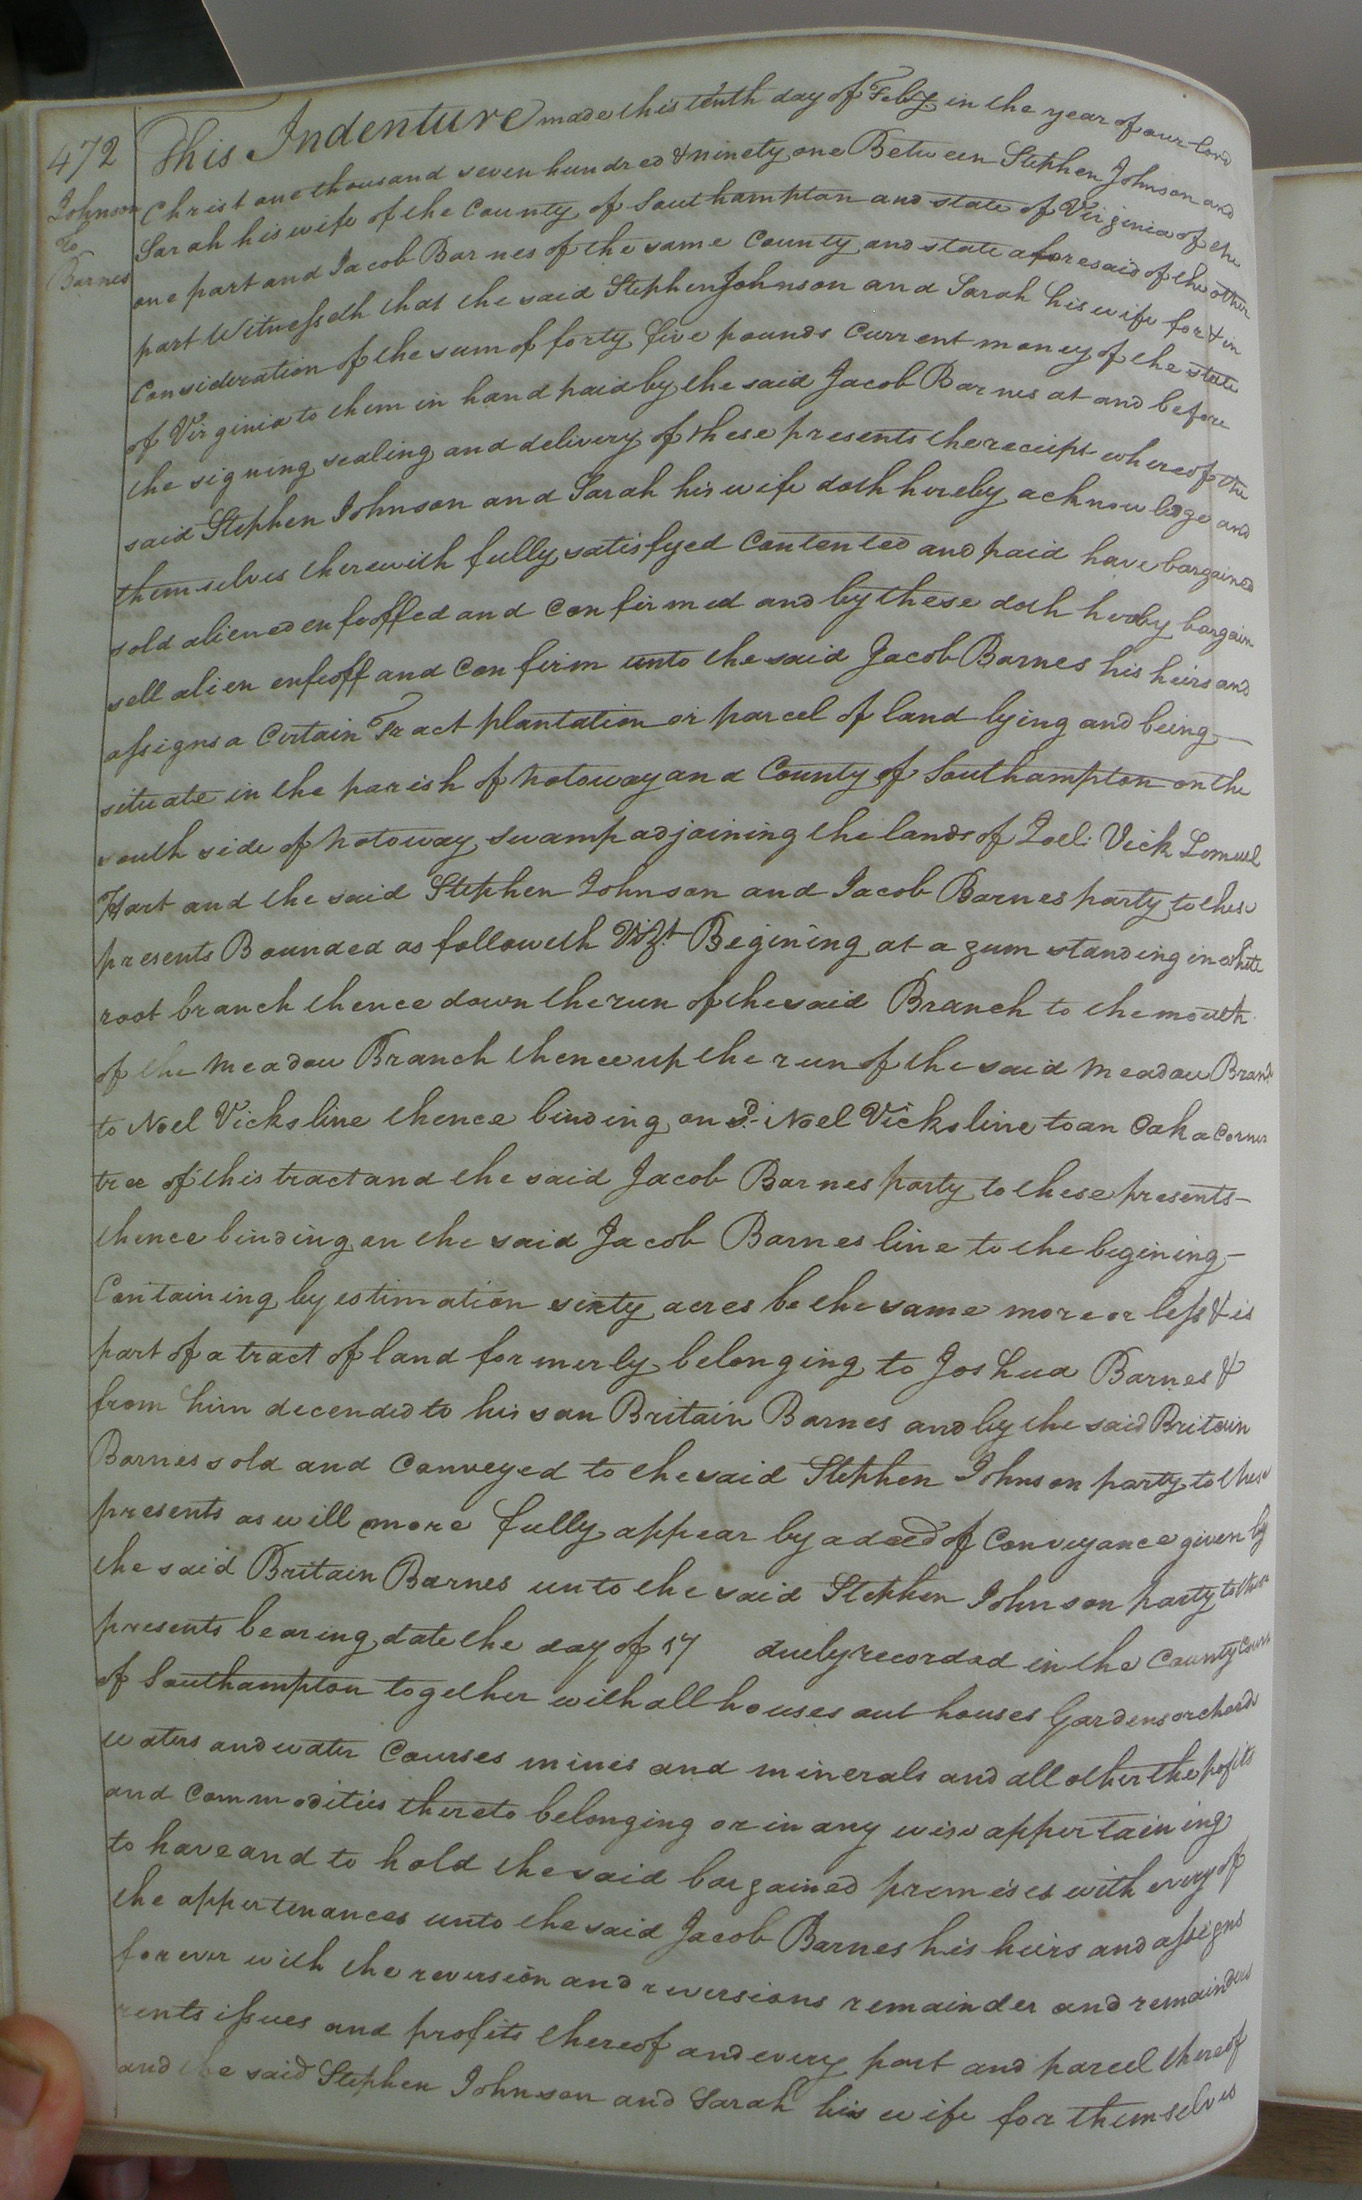 472
Johnson
to
Barnes
This Indenture made this tenth day of Feby in the year of our Lord
Christ one thousand seven hundred & ninety one Between Stephen Johnson and
Sarah his wife of the County of Southampton and state of Virginia of the
one part and Jacob Barnes of the same County and state aforesaid of the other
part Witnesseth that the said Stephen Johnson and Sarah his wife for & in
Consideration of the sum of forty five pounds Current money of the state
of Virginia to them in hand paid by the said Jacob Barnes at and before
the signing sealing and delivery of these presents the receipt whereof the
said Stephen Johnson and Sarah his wife doth hereby acknowlege and
themselves therewith fully satisfyed Contented and paid have bargained
sold aliened enfeoffed and Confirmed and by these doth hereby bargain
sell alien enfeoff and Confirm unto the said Jacob Barnes his heirs and
assigns a Certain Tract plantation or parcel of land lying and being
situate in the parish of Notoway and County of Southampton on the
south side of Notoway swamp adjoining the lands of Joel Vick Lemuel
Hart and the said Stephen Johnson and Jacob Barnes party to these
presents Bounded as followeth Vizt. Begining at a gum standing in white
root branch thence down the run of the said Branch to the mouth
of the Meadow Branch thence up the run of the said Meadow Branch
to Noel Vicks line thence binding on sd. Noel Vicks line to an Oak a Corner
tree of this tract and the said Jacob Barnes party to these presents
thence binding on the said Jacob Barnes line to the begining
Containing by estimation sixty acres be the same more or less & is
part of a tract of land formerly belonging to Joshua Barnes &
from him decended to his son Britain Barnes and by the said Britain
Barnes sold and Conveyed to the said Stephen Johnson party to these
presents as will more fully appear by a deed of Conveyance given by
the said Britain Barnes unto the said Stephen Johnson party to these
presents bearing date the day of 17 duely recorded in the County Court
of Southampton together with all houses out houses Gardens orchards
waters and water Courses mines and minerals and all other the profits
and Commodities thereto belonging or in any wise appertaining
to have and to hold the said bargained premises with every of
the appertenances unto the said Jacob Barnes his heirs and assigns
forever with the reversion and reversions remainder and remainders
rents issues and profits thereof and every part and parcel thereof
and the said Stephen Johnson and Sarah his wife for themselves